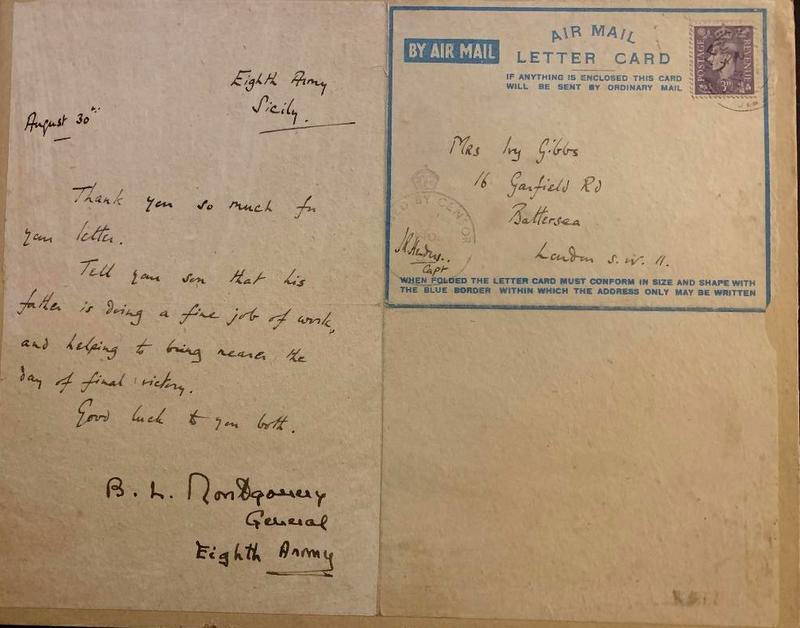 Eighth Army
Sicily.
August 30th
Thank you so much for
your letter.
Tell your son that his
father is doing a fine job of work,
and helping to bring nearer the
day of final victory.
Good luck to you both.
B. L. Montgomery
General
Eighth Army
BY AIR MAIL
AIR MAIL
LETTER CARD
IF ANYTHING IS ENCLOSED THIS CARD
WILL BE SENT BY ORDINARY MAIL
POSTAGE
REVENUE
3D
Mrs Ivy Gibbs
16 Garfield Rd
Battersea
London S.W. 11.
BY CENSOR
NO.
Capt
WHEN FOLDED THE LETTER CARD MUST CONFORM IN SIZE AND SHAPE WITH
THE BLUE BORDER WITHIN WHICH THE ADDRESS ONLY MAY BE WRITTEN